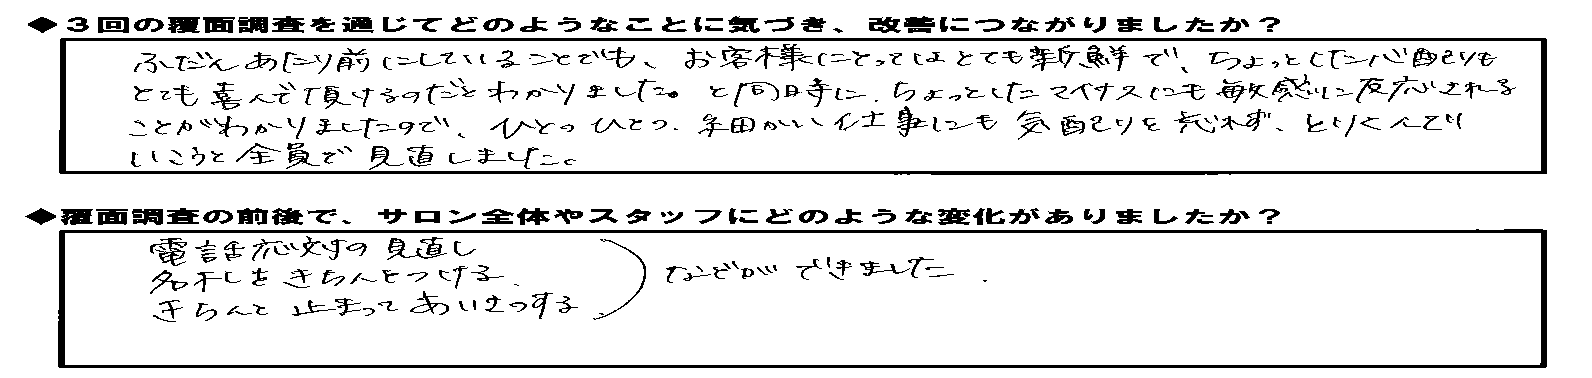 ◆３回の覆面調査を通じてどのようなことに気づき、改善につながりましたか？
ふだんあたり前にしていることでも、お客様にとってはとても新鮮で、ちょっとした心配りも
とても喜んで頂けるのだとわかりました。と同時に、ちょっとしたマイナスにも敏感に反応される
ことがわかりましたので、ひとつひとつ、細かい仕事にも気配りを忘れず、とりくんで
いこうと全員で見直しました。
◆覆面調査の前後で、サロン全体やスタッフにどのような変化がありましたか？
電話応対の見直し
名札をきちんとつける
きちんと止まってあいさつする
などができました.